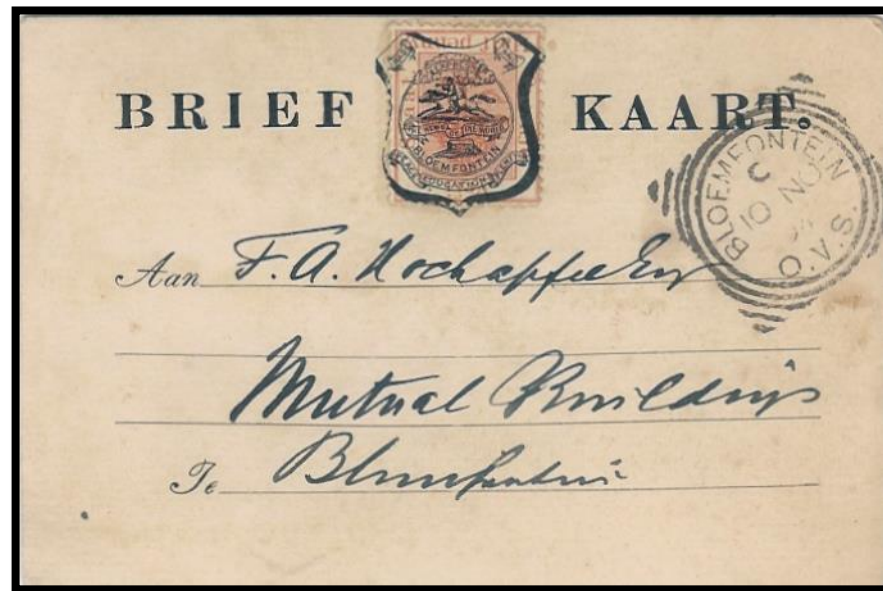 BRIEF KAART.
BLOEMFONTEIN
BLOEMFONTEIN
C
10 NO
O.V.S.
Aan F. A. Hochapfel Esq
Mutual Buildings
Te Bloemfontein